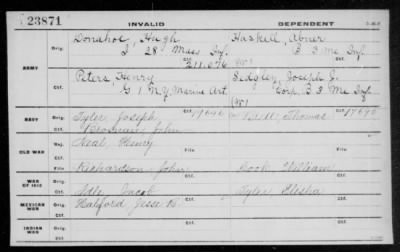 23871
INVALID
DEPENDENT
Donahoe, Hugh
Haskell, Abner
ARMY
Orig.
I 28 Mass Inf.
B 3 Me Inf
Ctf.
211.076
Peters, Henry
Sidgley, Joseph J.
Orig.
G 1 N.Y. Marine Art.
Corp. B 3 Me Inf
Ctf.
NAVY
Orig.
Tyler, Joseph
Thomas
Ctf.
Brosnan, John
OLD WAR
Neal, Henry
File
File
Richardson, John
Cook, William
WAR OF 1812
Orig.
Idle, Jacob
Tyler, Elisha
Ctf.
MEXICAN WAR
Orig.
Halford, Jesse B.
Ctf.
INDIAN WAR
Orig.
Ctf.